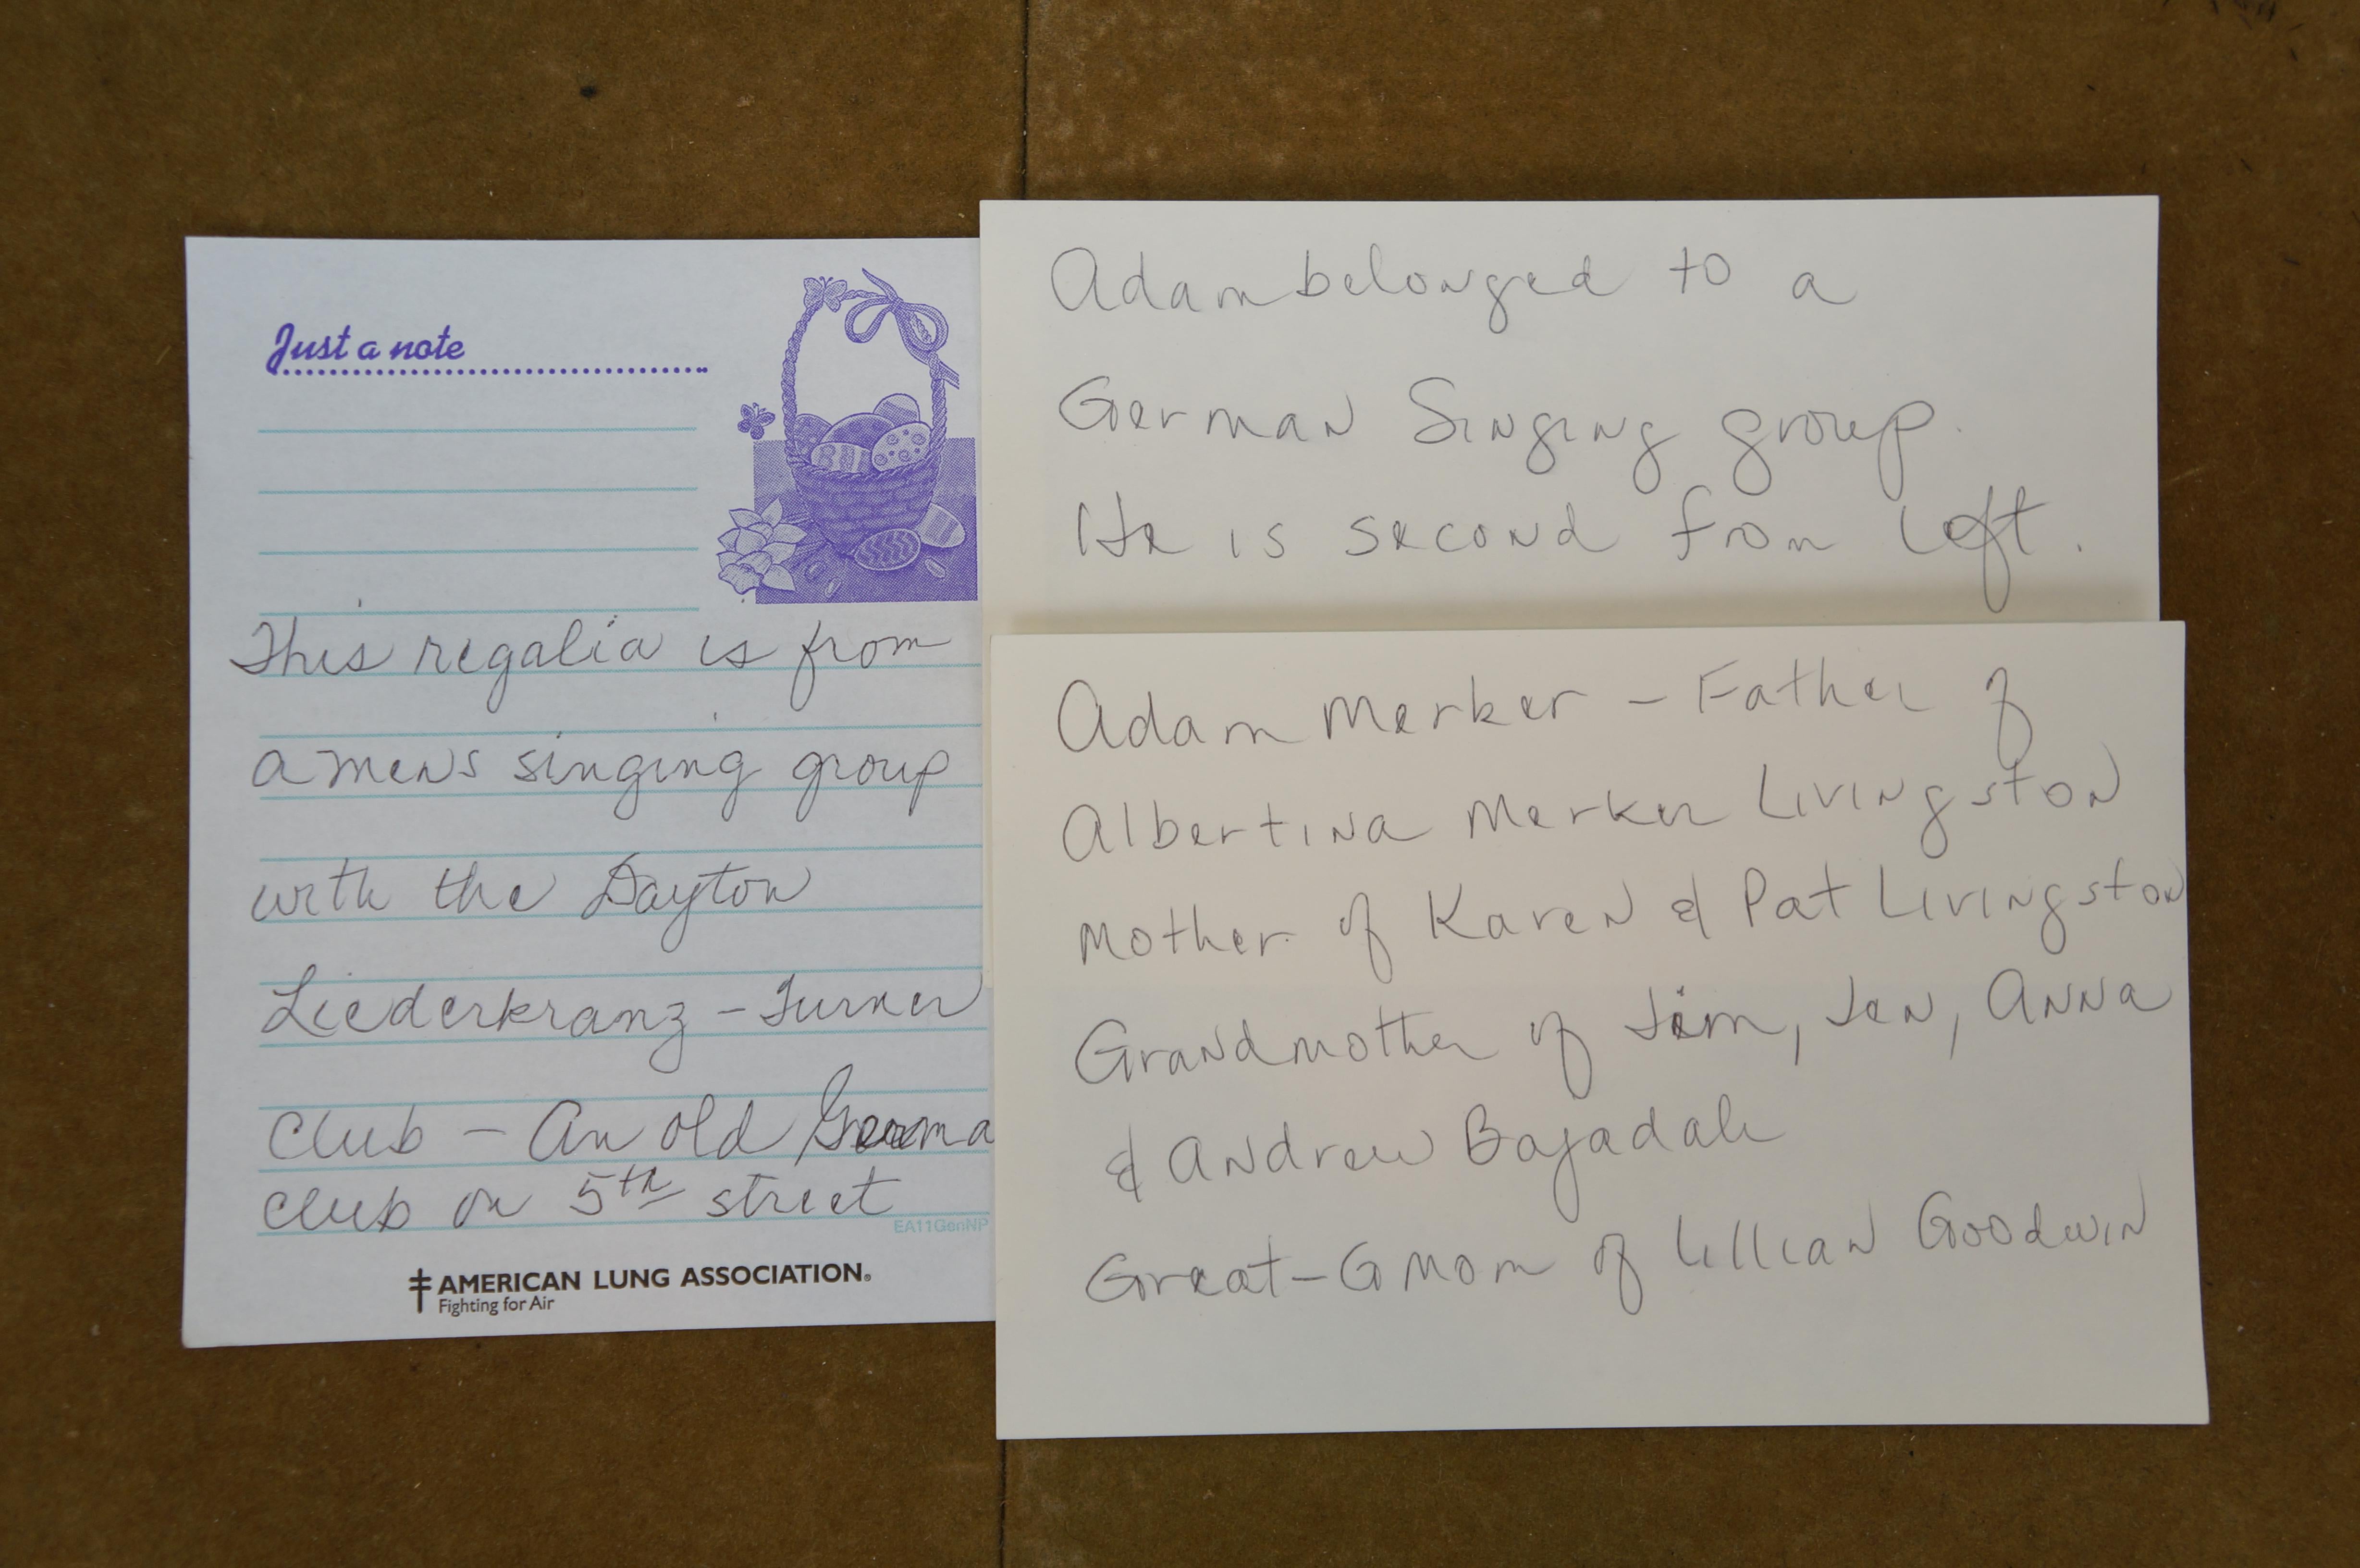 Just a note
This regalia is from
a mens singing group
with the Dayton
Liederkranz - Turner
Club - An old Germa
club on 5th street
EA11GenNP
AMERICAN LUNG ASSOCIATION®
Fighting for Air
Adam belonged to a
German Singing group.
He is second from left.
Adam Merker - Father of
Albertina Merker Livingston
Mother of Karen & Pat Livingston
Grandmother of Jim, Jen, Anna
& Andrew
Great-GMom of Lillian Goodwin